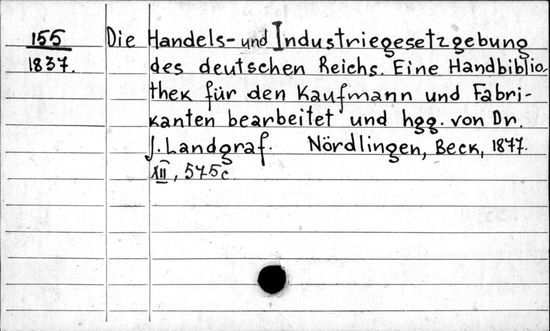 155 Die Handels- und Industriegesetzgebung
1837. des deutschen Reichs. Eine Handbiblio-
thek für den Kaufmann und Fabri-
kanten bearbeitet und hgg. von Dr.
J. Landgraf. Nördlingen, Beck, 1877.
XII, 575 c